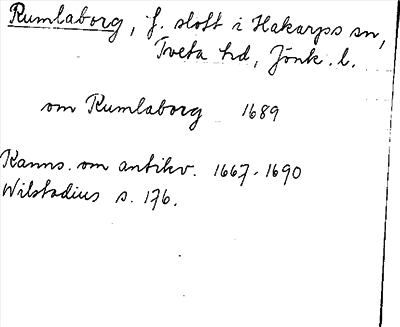 Rumlaborg, f. slott i Hakarps sn,
Tveta hd, Jönk. l.
om Rumlaborg 1689
Ranns. om antikv. 1667-1690
Wilstadius s. 176.